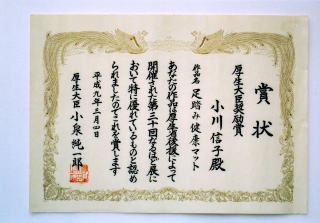 賞状
厚生大臣奨励賞
小川信子殿
作品名 足踏み健康マット
あなたの作品は厚生省後援によって
開催された第三十回なるほど展に
おいて特に優れているものと認め
られましたのでこれを賞します
平成九年三月四日
厚生大臣 小泉純一郎